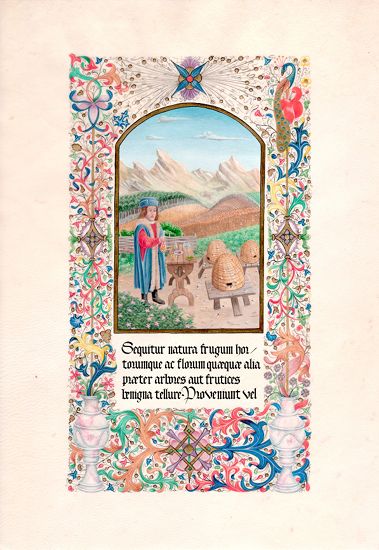 Sequitur natura frugum hor/
torumque ac florum quæquæ alia
præter arbores aut frutices
benigna tellure· Proveniunt vel